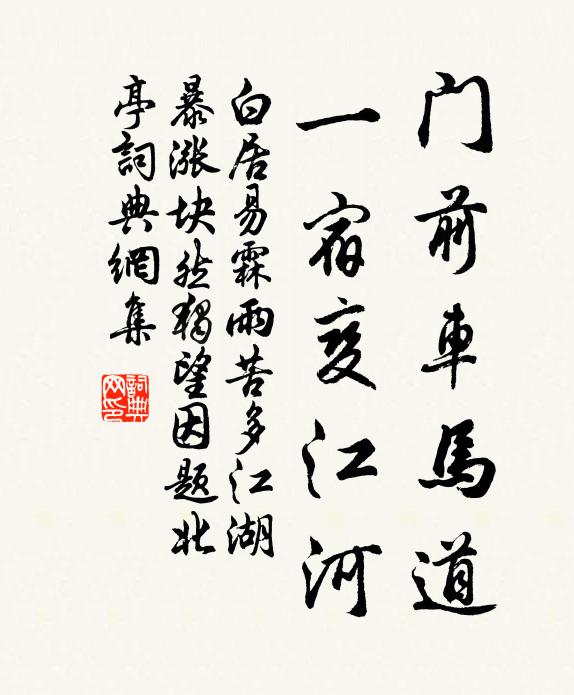 门前車馬道
一宿变江河
白居易霖雨苦多江湖
暴涨块然独望因题北
亭詞典網集
詞典
网印